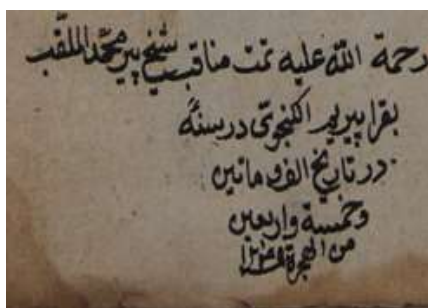 رحمة الله عليه تمت مناقب شيخ پير محمد الملقب
بقرا پيريم اكنجوى در سنهٔ
در تاريخ الف و ماتين
وخمسة واربعين
من الهجرة ١٢٤٥